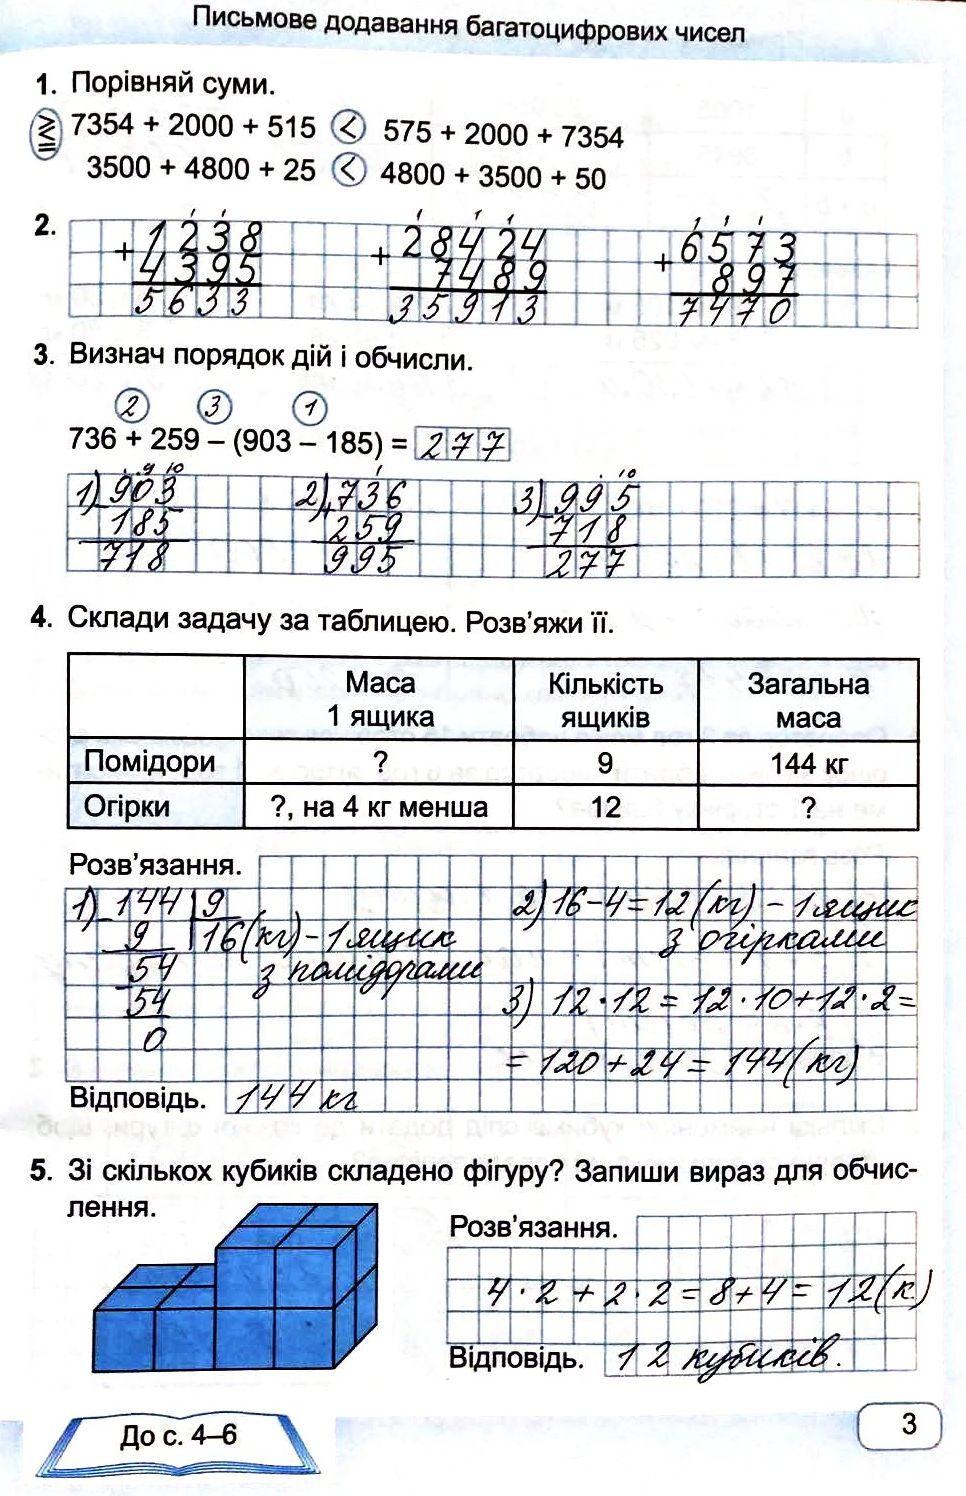 Письмове додавання багатоцифрових чисел
1. Порівняй суми.
7354 + 2000 + 515 < 575 + 2000 + 7354
3500 + 4800 + 25 < 4800 + 3500 + 50
2.
+ 1238 + 28424 + 6573
4395 7489 897
5633 35913 7470
3. Визнач порядок дій і обчисли.
2 3 1
736 + 259 – (903 – 185) = 277
1) 903 2) 736 3) 995
– 185 + 259 – 718
718 995 277
4. Склади задачу за таблицею. Розв’яжи її.
Маса 1 ящика Кількість ящиків Загальна маса
Помідори ? 9 144 кг
Огірки ?, на 4 кг менша 12 ?
Розв’язання.
1) 144 | 9 2) 16–4=12 (кг) – 1 ящик
9 16 (кг) – 1 ящик з огірками
54 з помідорами
54 3) 12·12 = 12·10+12·2=
0 = 120+24=144 (кг)
Відповідь. 144 кг
5. Зі скількох кубиків складено фігуру? Запиши вираз для обчис-
лення.
Розв’язання.
4·2+2·2=8+4=12(к)
Відповідь. 12 кубиків.
До с. 4–6
3